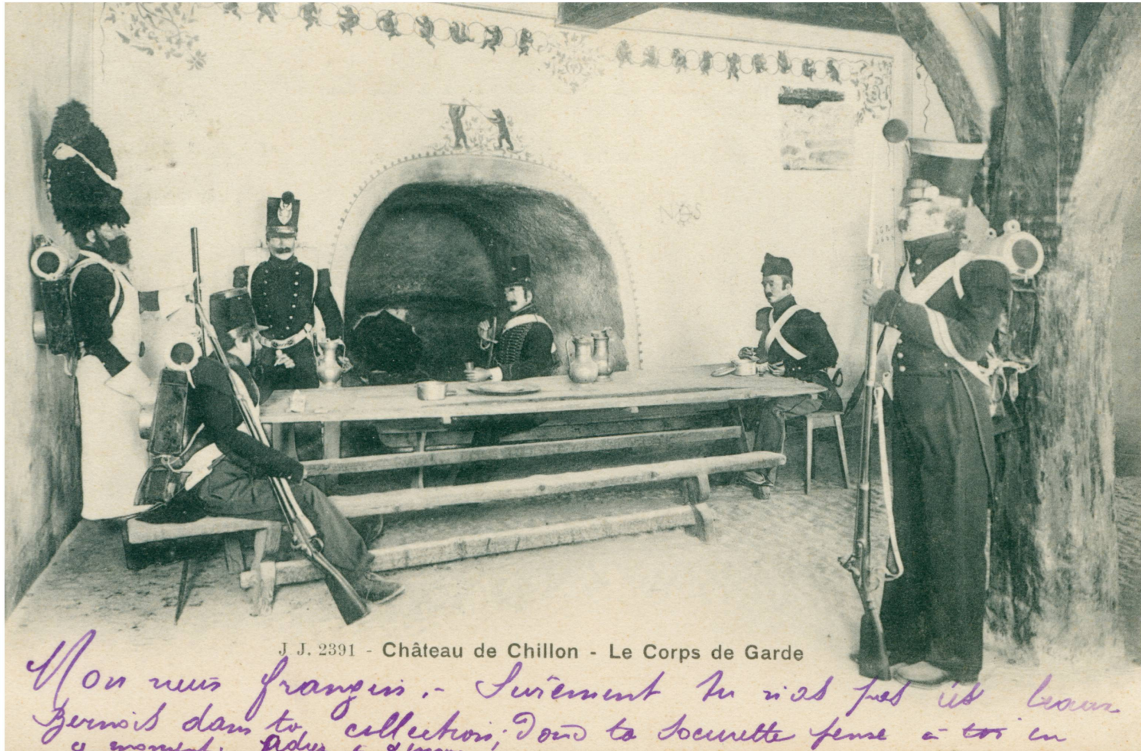 J J. 2391 - Château de Chillon - Le Corps de Garde
Mon frangin. - Surement tu n'as pas les beaux
Bernois dans ta collection; Donc ta soeurette pense à toi en
ce moment.